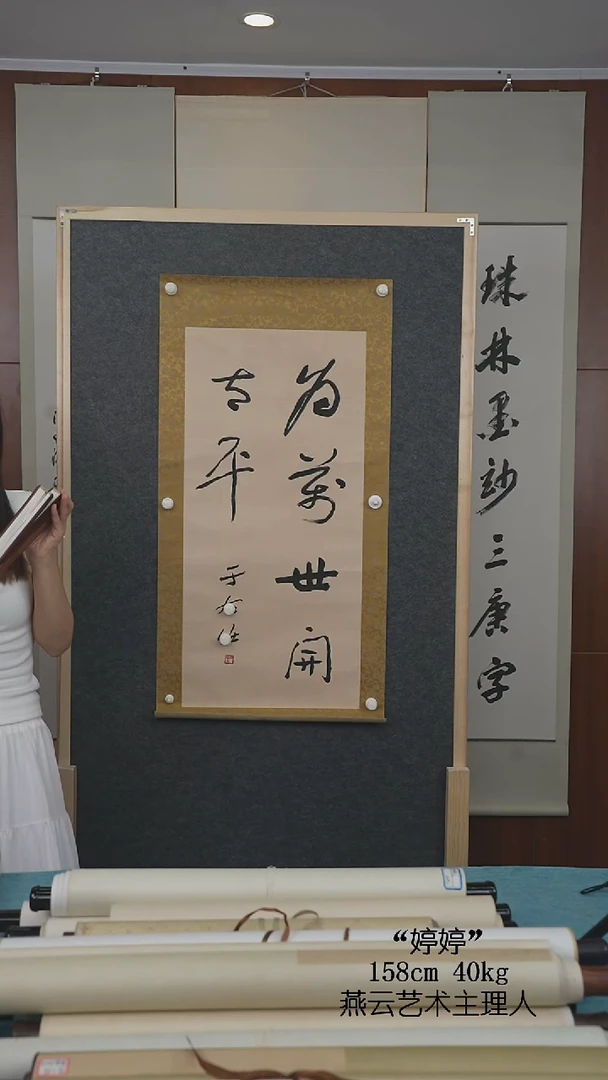 为萬世開
太平
于右任
珠林墨妙三唐字
“婷婷”
158cm 40kg
燕云艺术主理人